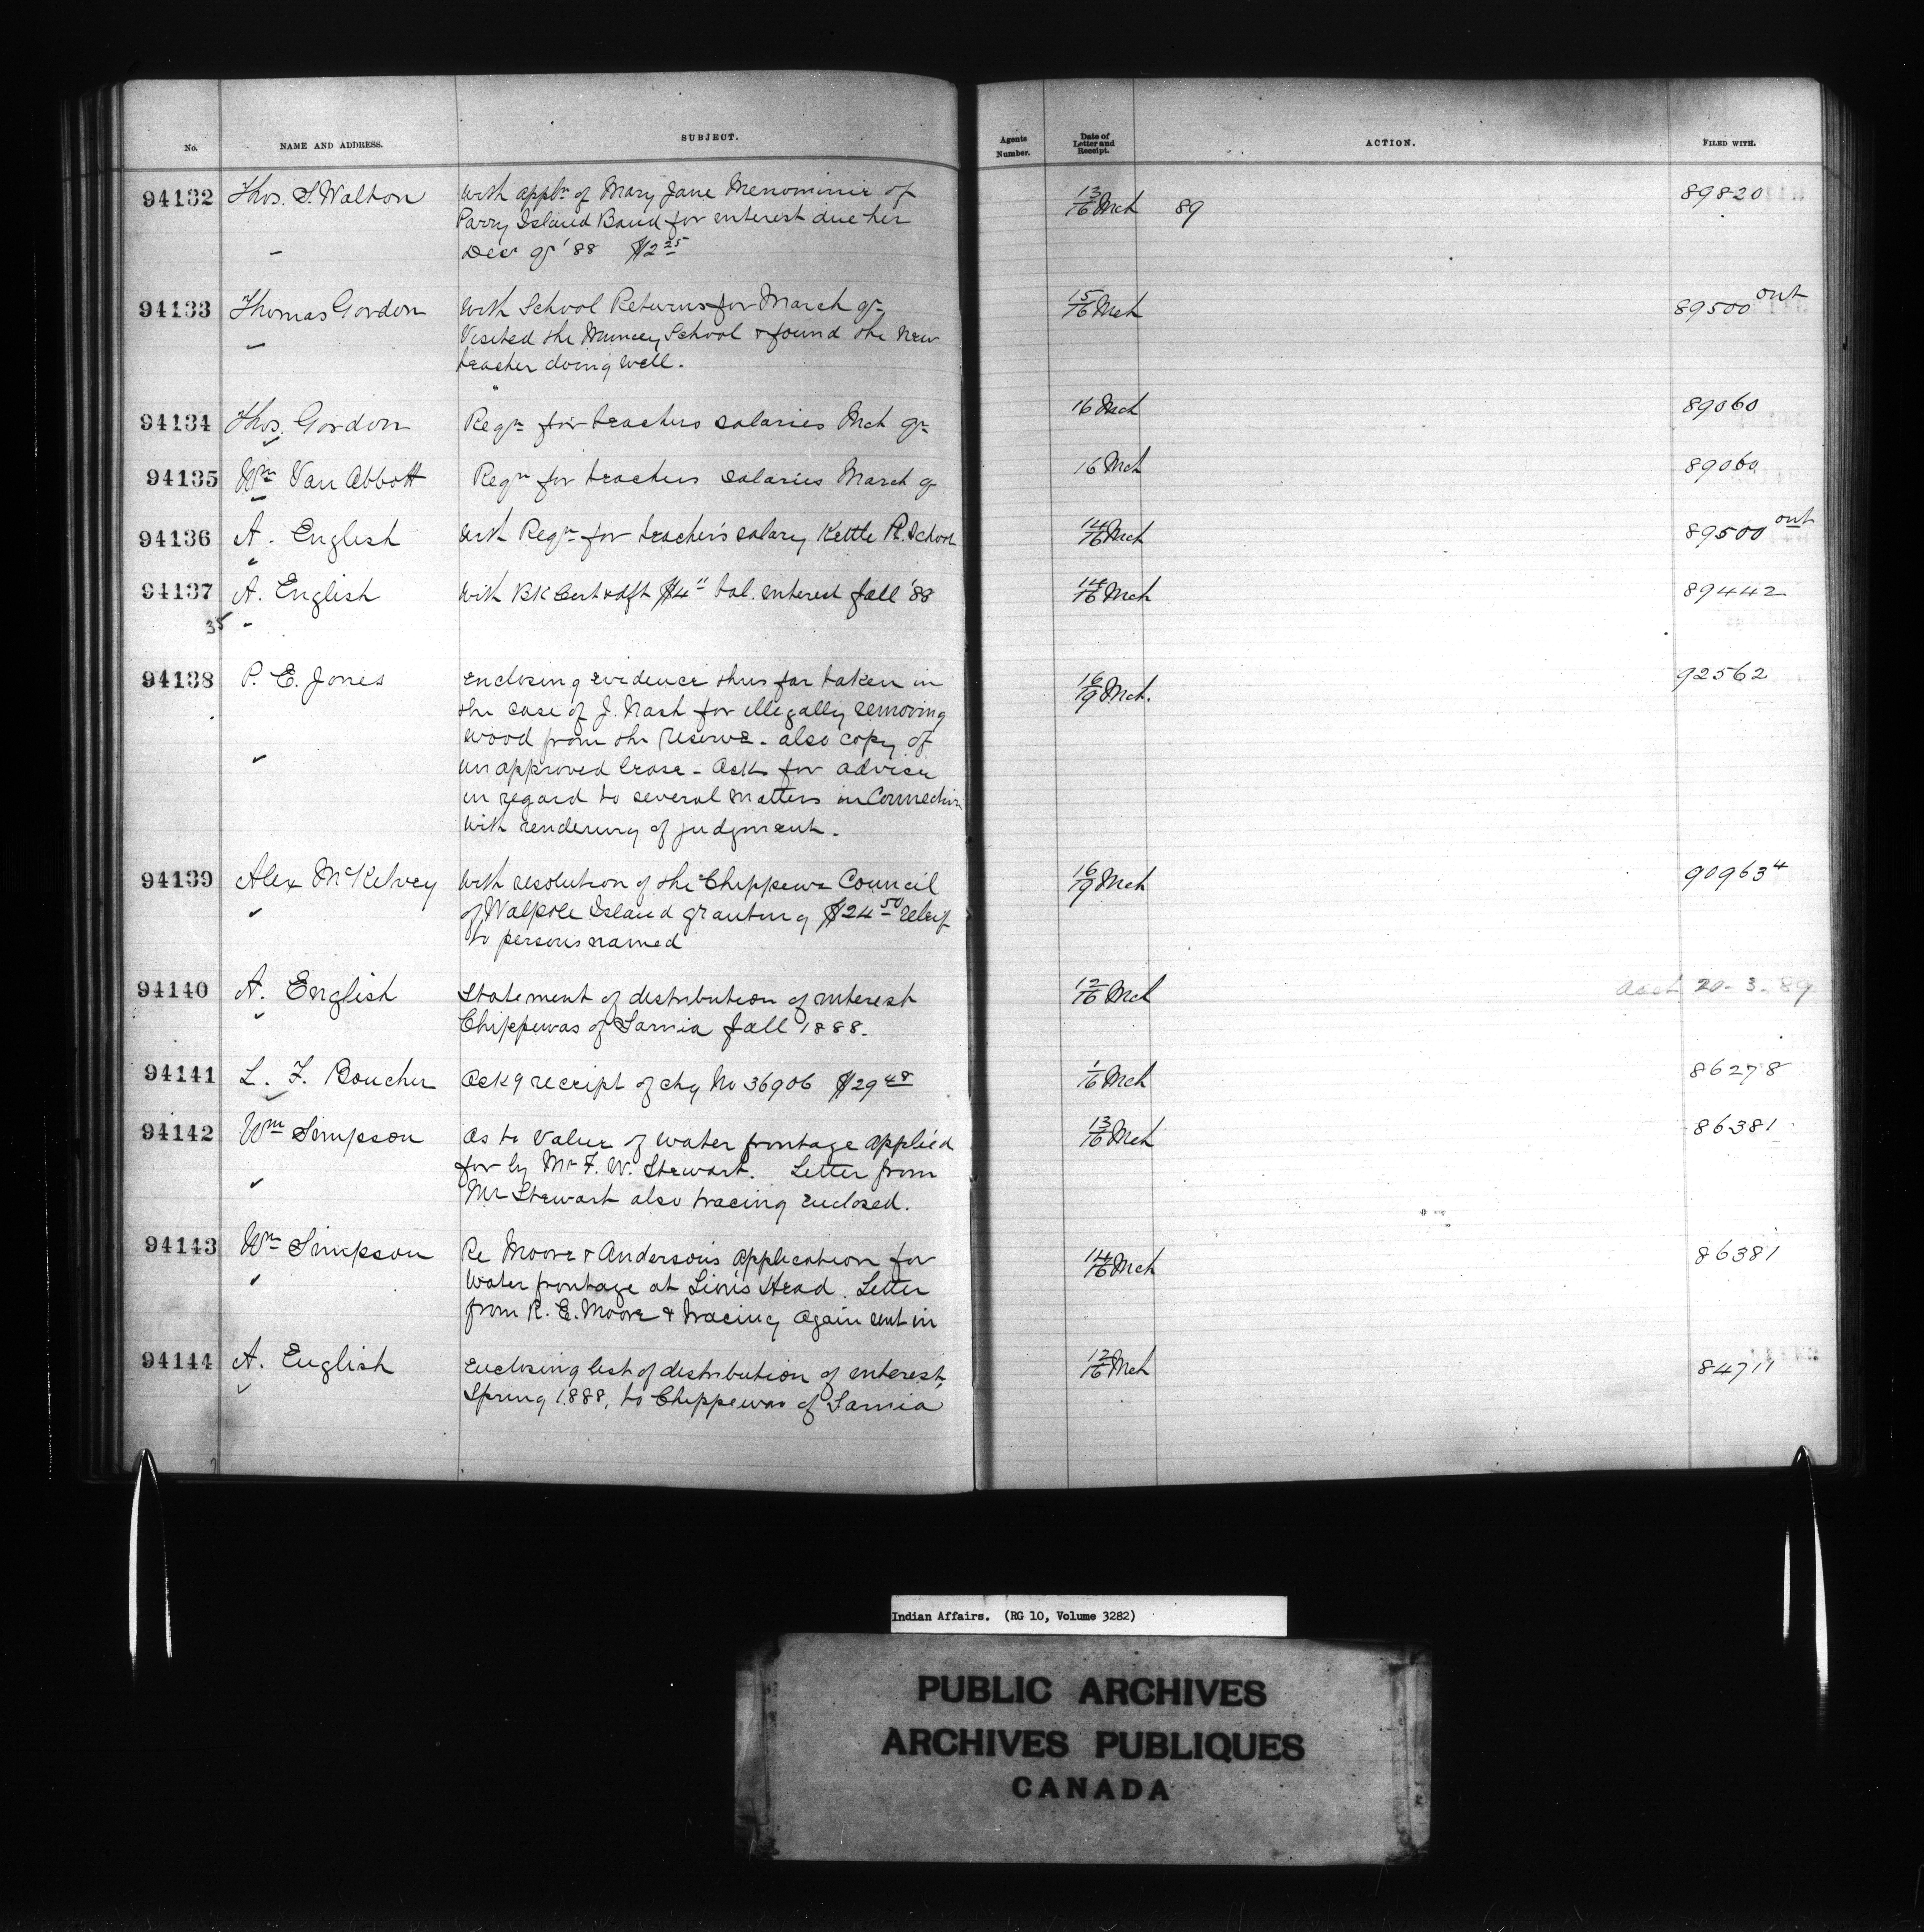 No. NAME AND ADDRESS. SUBJECT. Agents Number. Date of Letter and Receipt. ACTION. FILED WITH.
94132 Thos. S. Walton With appln of Mary Jane Menominie of 13/16 Mch 89 89820
Parry Island Band for interest due her
Decr qr '88 $2 25
94133 Thomas Gordon With School Returns for March qr 15/16 Mch 89500 out
Visited the Muncey School & found the new
teacher doing well.
94134 Thos. Gordon Reqn for teachers salaries Mch qr 16 Mch 89060
94135 Wm Van Abbott Reqn for teachers salaries March q 16 Mch 89060
94136 A. English With Reqn for teacher's salary Kettle Pt. School 14/16 Mch 89500 out
94137 A. English With BK Cert & dft $4 " bal. interest fall '88 14/16 Mch 89442
35
94138 P. E. Jones Enclosing evidence thus far taken in 16/19 Mch. 92562
the case of J. Nash for illegally removing
wood from the reserve - also copy of
unapproved lease - Asks for advice
in regard to several matters in Connection
with rendering of judgment.
94139 Alex McKelvey With resolution of the Chippewa Council 16/19 Mch 90963 4
of Walpole Island granting $24 50 relief
to persons named
94140 A. English Statement of distribution of interest 12/16 Mch 20-3-89
Chippewas of Sarnia fall 1888.
94141 L. F. Boucher Ackg receipt of chq No 36906 $29 48 1/16 Mch 86278
94142 Wm Simpson As to value of water frontage applied 13/16 Mch 86381
for by Mr F. W. Stewart. Letter from
Mr Stewart also tracing enclosed.
94143 Wm Simpson Re Moore & Anderson's application for 14/16 Mch 86381
water frontage at Lion's Head. Letter
from R. E. Moore & tracing again sent in
94144 A. English Enclosing list of distribution of interest, 12/16 Mch 84711
Spring 1888, to Chippewas of Sarnia
Indian Affairs. (RG 10, Volume 3282)
PUBLIC ARCHIVES
ARCHIVES PUBLIQUES
CANADA